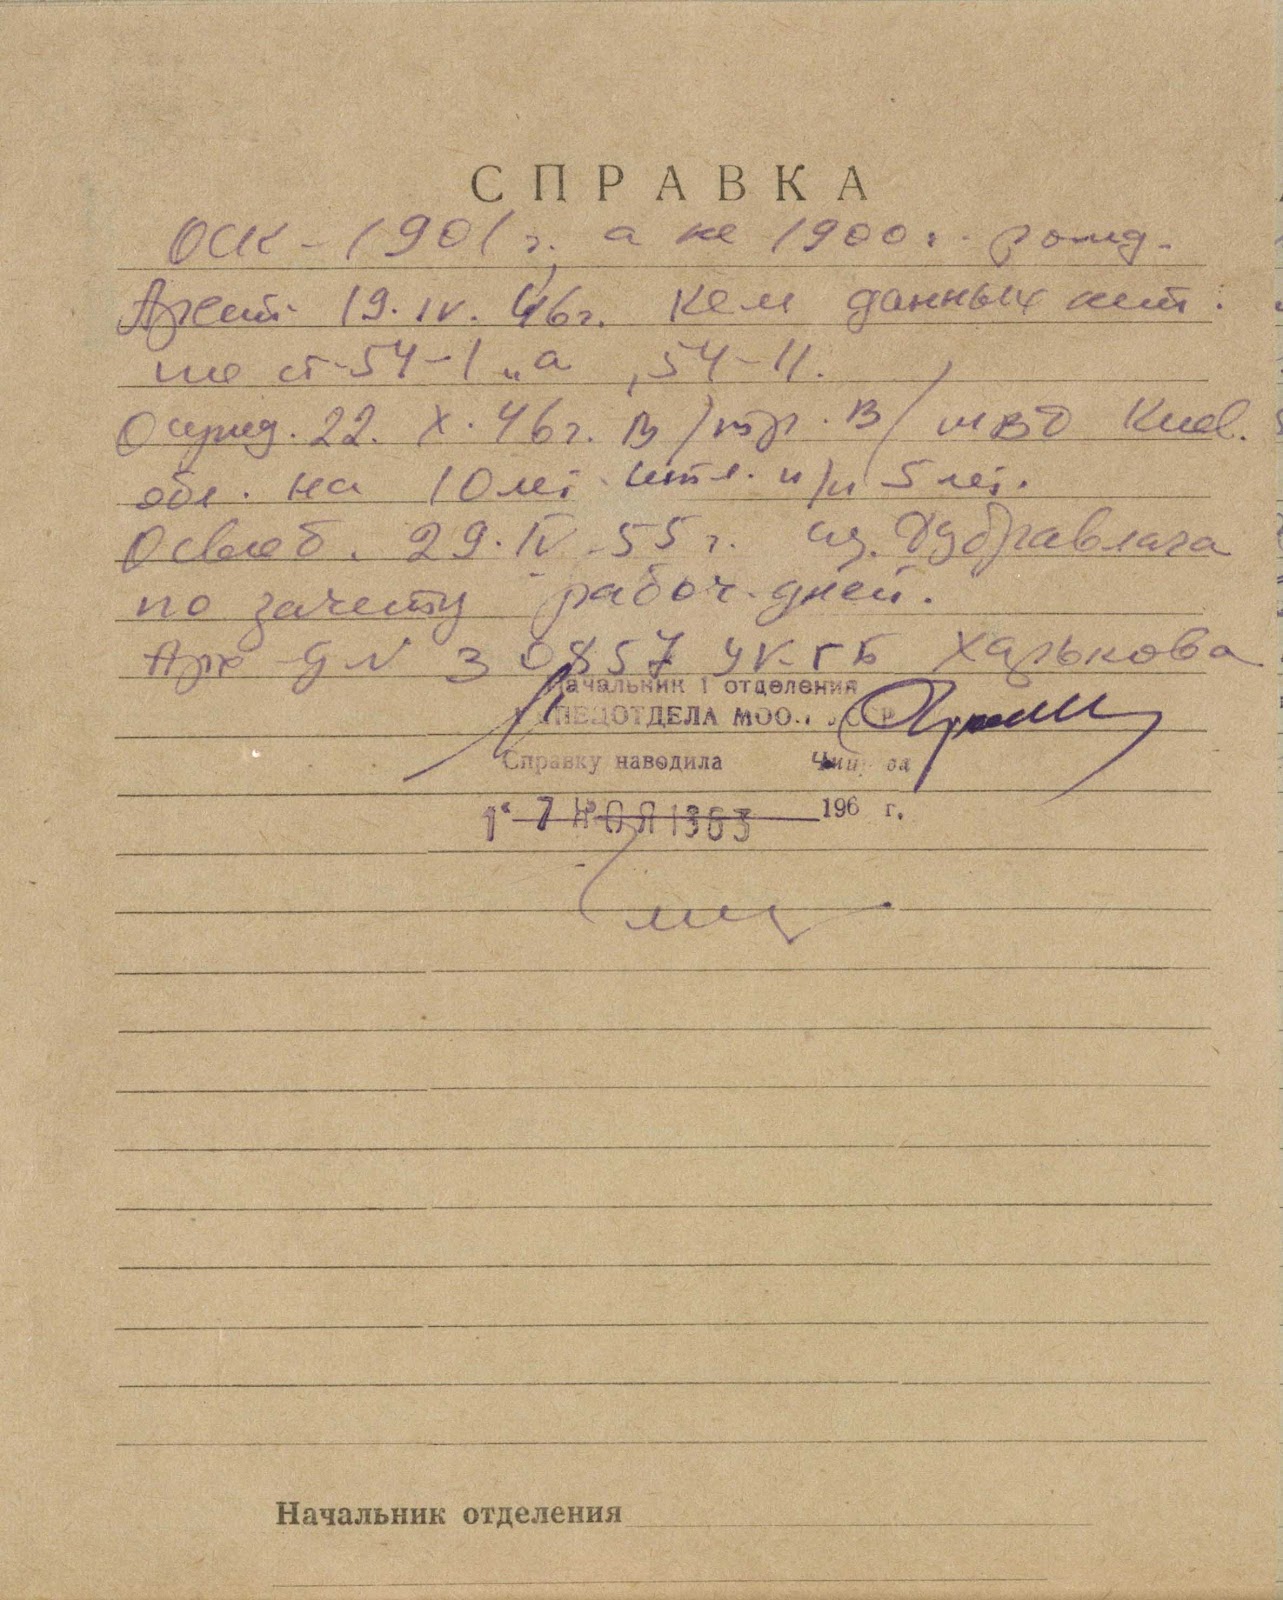 СПРАВКА
ОСК - 1901 г. а не 1900 г. рожд.
Арест. 19. IV. 46 г. Кем данных нет.
по ст. 54-1 „а", 54-11.
Осужд. 22. X. 46 г. В/тр. В/ МВД Киев.
обл. на 10 лет итл. п/п 5 лет.
Освоб. 29. IV. 55 г. из Дубравлага
по зачету рабоч. дней.
Арх. д N 30857 УКГБ Харькова
Начальник 1 отделения
СПЕЦОТДЕЛА МООП
Справку наводила
17 ИЮЛ 1963 196 г.
Начальник отделения